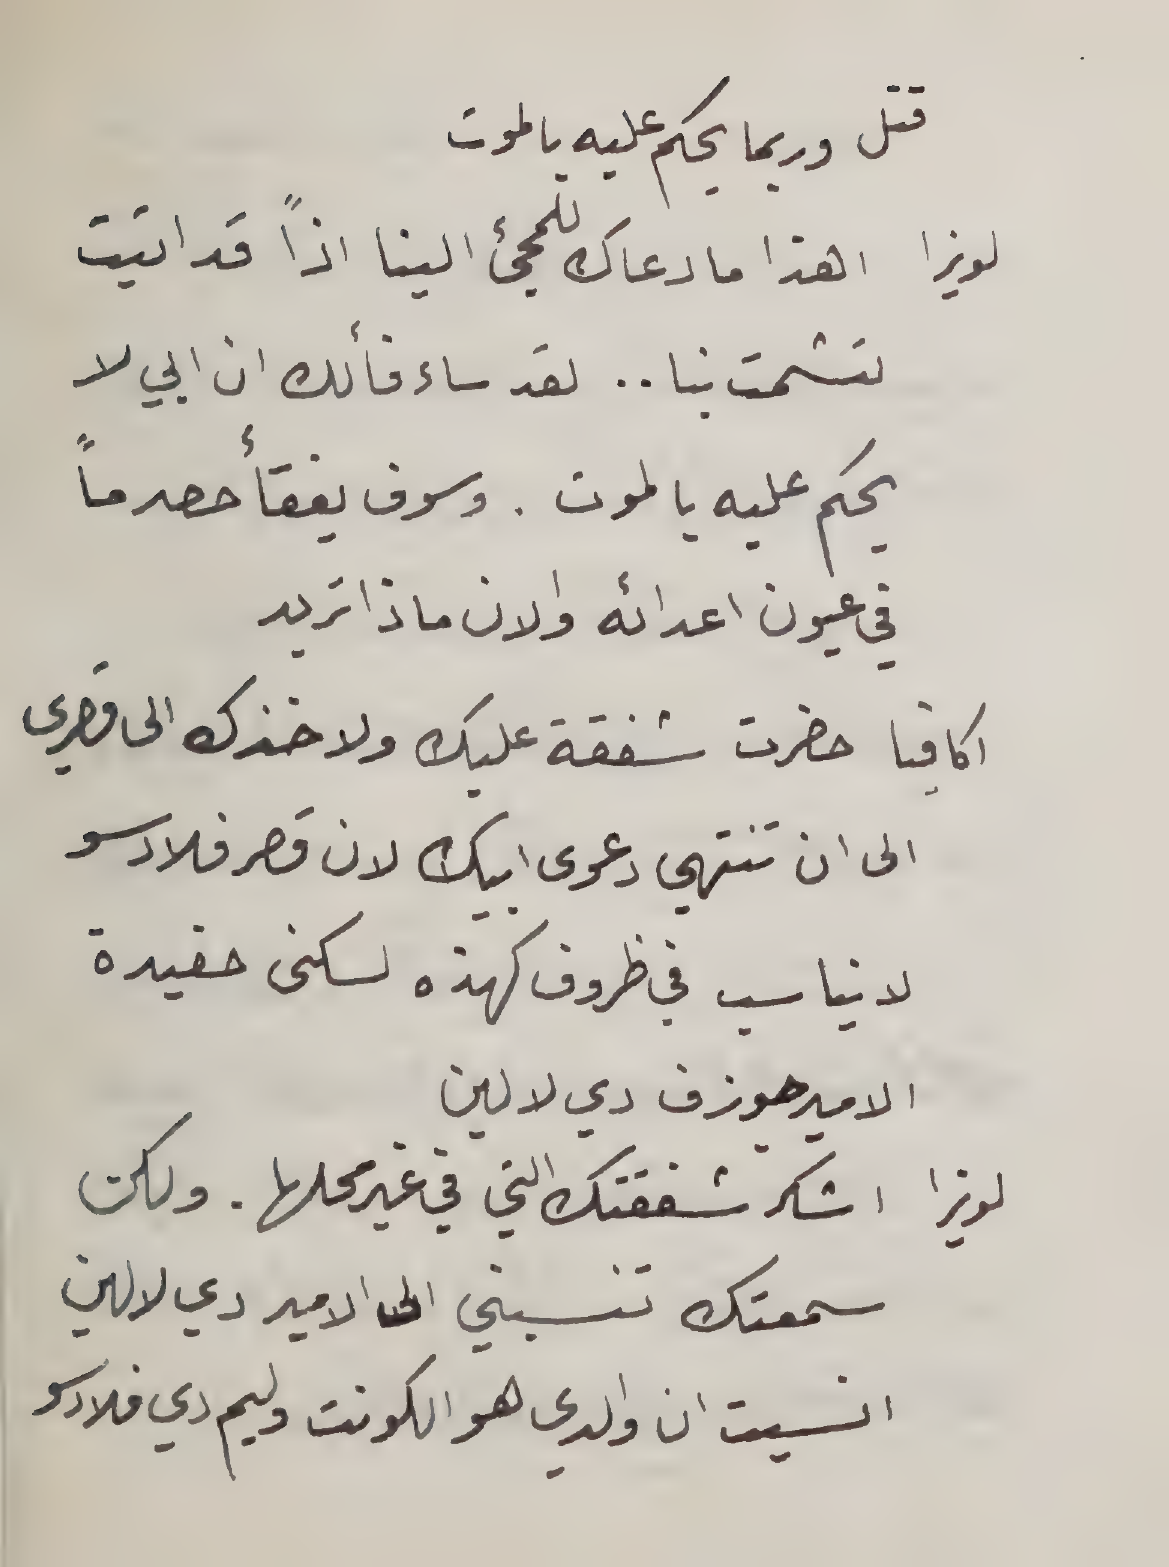 قتل وربما يحكم عليه بالموت
لويزا اهذا ما دعاك للمجئ الينا اذاً قد اتيت
لتشمت بنا .. لقد ساء فألك ان ابي لا
يحكم عليه بالموت . وسوف يفقأ حصرماً
في عيون اعدائه والان ماذا تريد
اكافيا حضرت شفقة عليك ولاخذك الى قصري
الى ان تنتهي دعوى ابيك لان قصر فلادسو
لا يناسب في ظروف كهذه لسكنى حفيدة
الامير جوزف دي لالين
لويزا اشكر شفقتك التي في غير محلها . ولكن
سمعتك تنسبني الى الامير دي لالين
انسيت ان والدي هو الكونت وليم دي فلادسو